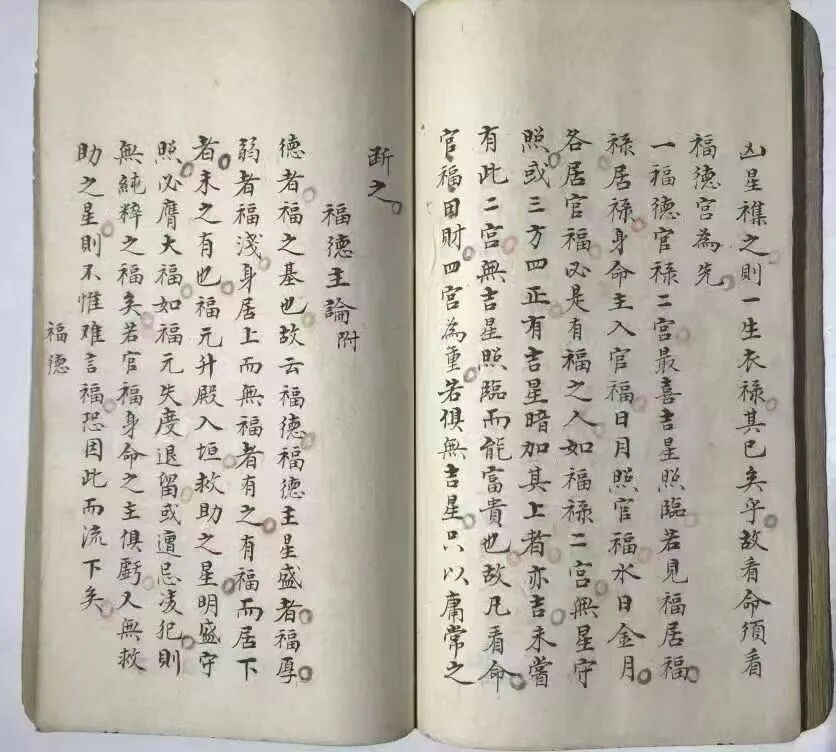 凶星襍之則一生衣禄其已矣乎故看命須看
福德宮為先
一福德官禄二宮最喜吉星照臨若見福居福
禄居禄身命主入官福日月照官福水日金月
各居官福必是有福之人如福禄二宮無星守
照或三方四正有吉星暗加其上者亦吉未嘗
有此二宮無吉星照臨而能富貴也故凡看命
官福田財四宮為重若俱無吉星只以庸常之
断之
福德主論附
德者福之基也故云福德福德主星盛者福厚
弱者福淺身居上而無福者有之有福而居下
者未之有也福元升殿入垣救助之星明盛守
照必膺大福如福元失度退留或遭忌凌犯則
無純粹之福矣若官福身命之主俱虧又無救
助之星則不惟难言福恐因此而流下矣
福德